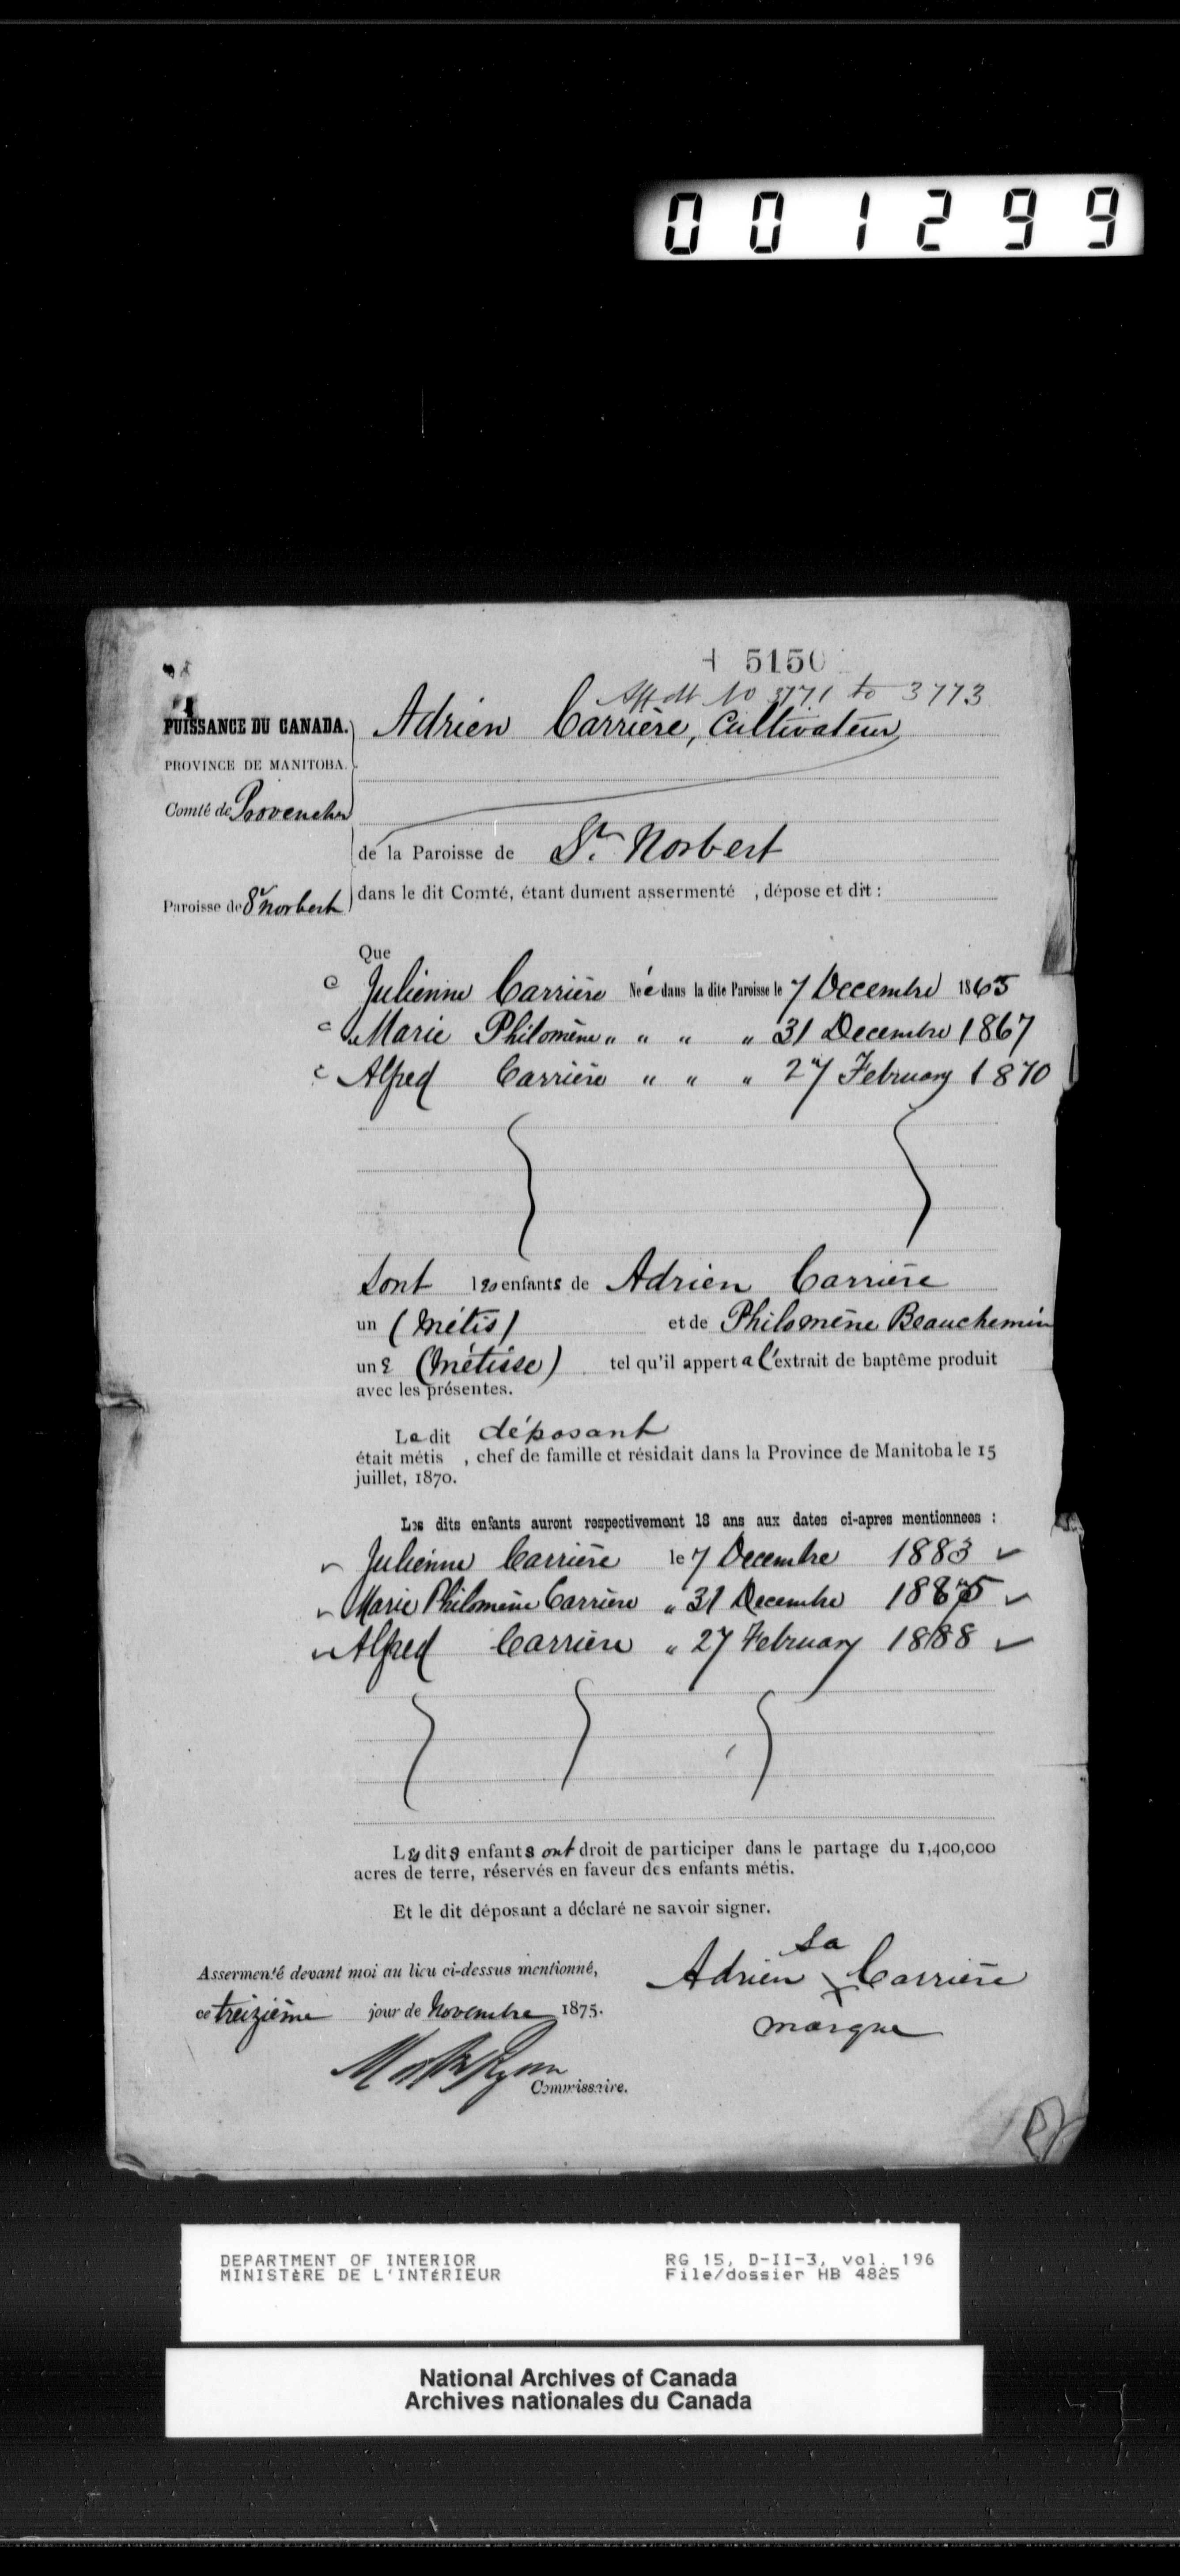 001299
5150
Affdt No 3771 to 3773
PUISSANCE DU CANADA. Adrien Carrière, Cultivateur
PROVINCE DE MANITOBA.
Comté de Provencher
de la Paroisse de St. Norbert
dans le dit Comté, étant dument assermenté , dépose et dit :
Paroisse de St Norbert
Que
c Julienne Carrière Née dans la dite Paroisse le 7 Decembre 1865
c Marie Philomène " " " " 31 Decembre 1867
c Alfred Carrière " " " 27 February 1870
Sont les enfants de Adrien Carrière
un (Métis) et de Philomène Beauchemin
une (Métisse) tel qu'il appert a l'extrait de baptême produit
avec les présentes.
Le dit déposant
était métis , chef de famille et résidait dans la Province de Manitoba le 15
juillet, 1870.
Les dits enfants auront respectivement 18 ans aux dates ci-apres mentionnees :
Julienne Carrière le 7 Decembre 1883
Marie Philomène Carrière " 31 Decembre 1885
Alfred Carrière " 27 February 1888
Les dits enfants ont droit de participer dans le partage du 1,400,000
acres de terre, réservés en faveur des enfants métis.
Et le dit déposant a déclaré ne savoir signer.
Assermenté devant moi au lieu ci-dessus mentionné,
ce treizième jour de Novembre 1875.
Sa
Adrien X Carrière
marque
Commissaire.
DEPARTMENT OF INTERIOR
MINISTÈRE DE L'INTÉRIEUR
RG 15, D-II-3, vol. 196
File/dossier HB 4825
National Archives of Canada
Archives nationales du Canada